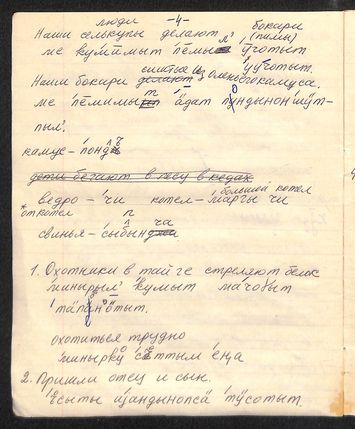 люди -4- бокари
Наши селькупы делают (пимы)
ме кумымыт пе̄мы ӱ̄готыт
сшитые из ӱӱготыт.
Наши бокари делают оленьего камуса.
ме пе̄мимыт ӓдат пондынон шӱт-
пыл'.
камус – понд
дети бегают в лесу в кедах
ведро – 'чи котел – ма̄ргы чи
большой котел
*от котел
свинья – сыбынча
1. Охотники в тайге стреляют белк
'шинырыл' кумыт мачоɣыт
та̄паноты̄т.
охотиться трудно
'шинырко сеттым еңа
2. Пришли отец и сын.
Есыты иjандынопса тӱсотыт.